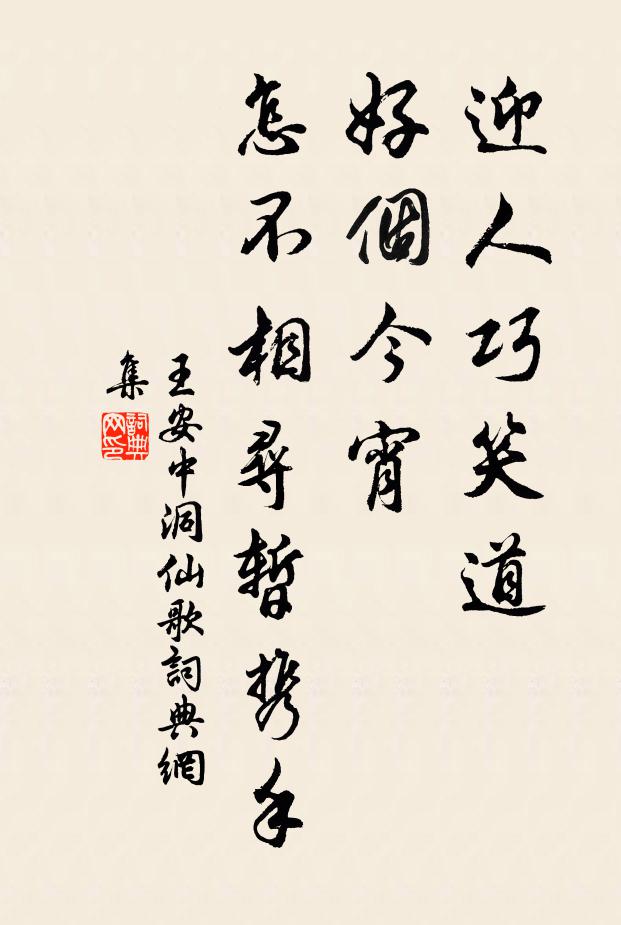 迎人巧笑道
好個今宵
怎不相尋暫携手
王安中洞仙歌詞典網
集
詞典网印